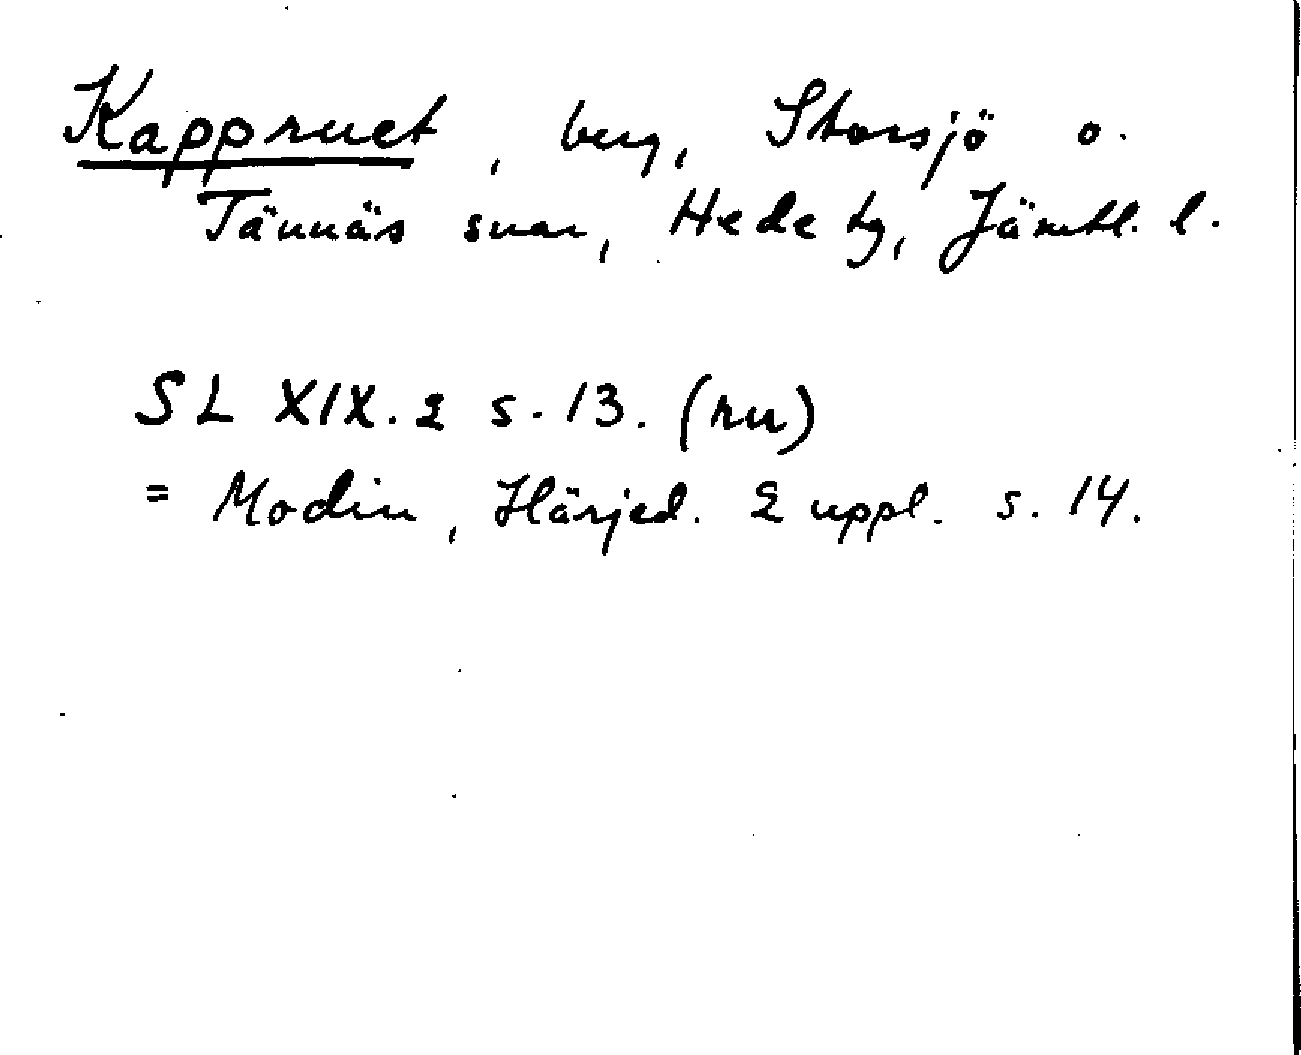 Kappruet, berg, Storsjö o.
Tännäs snar, Hede tg, Jämtl. l.
SL XIX. 2 s. 13. (ru)
= Modin, Härjed. 2 uppl. s. 14.